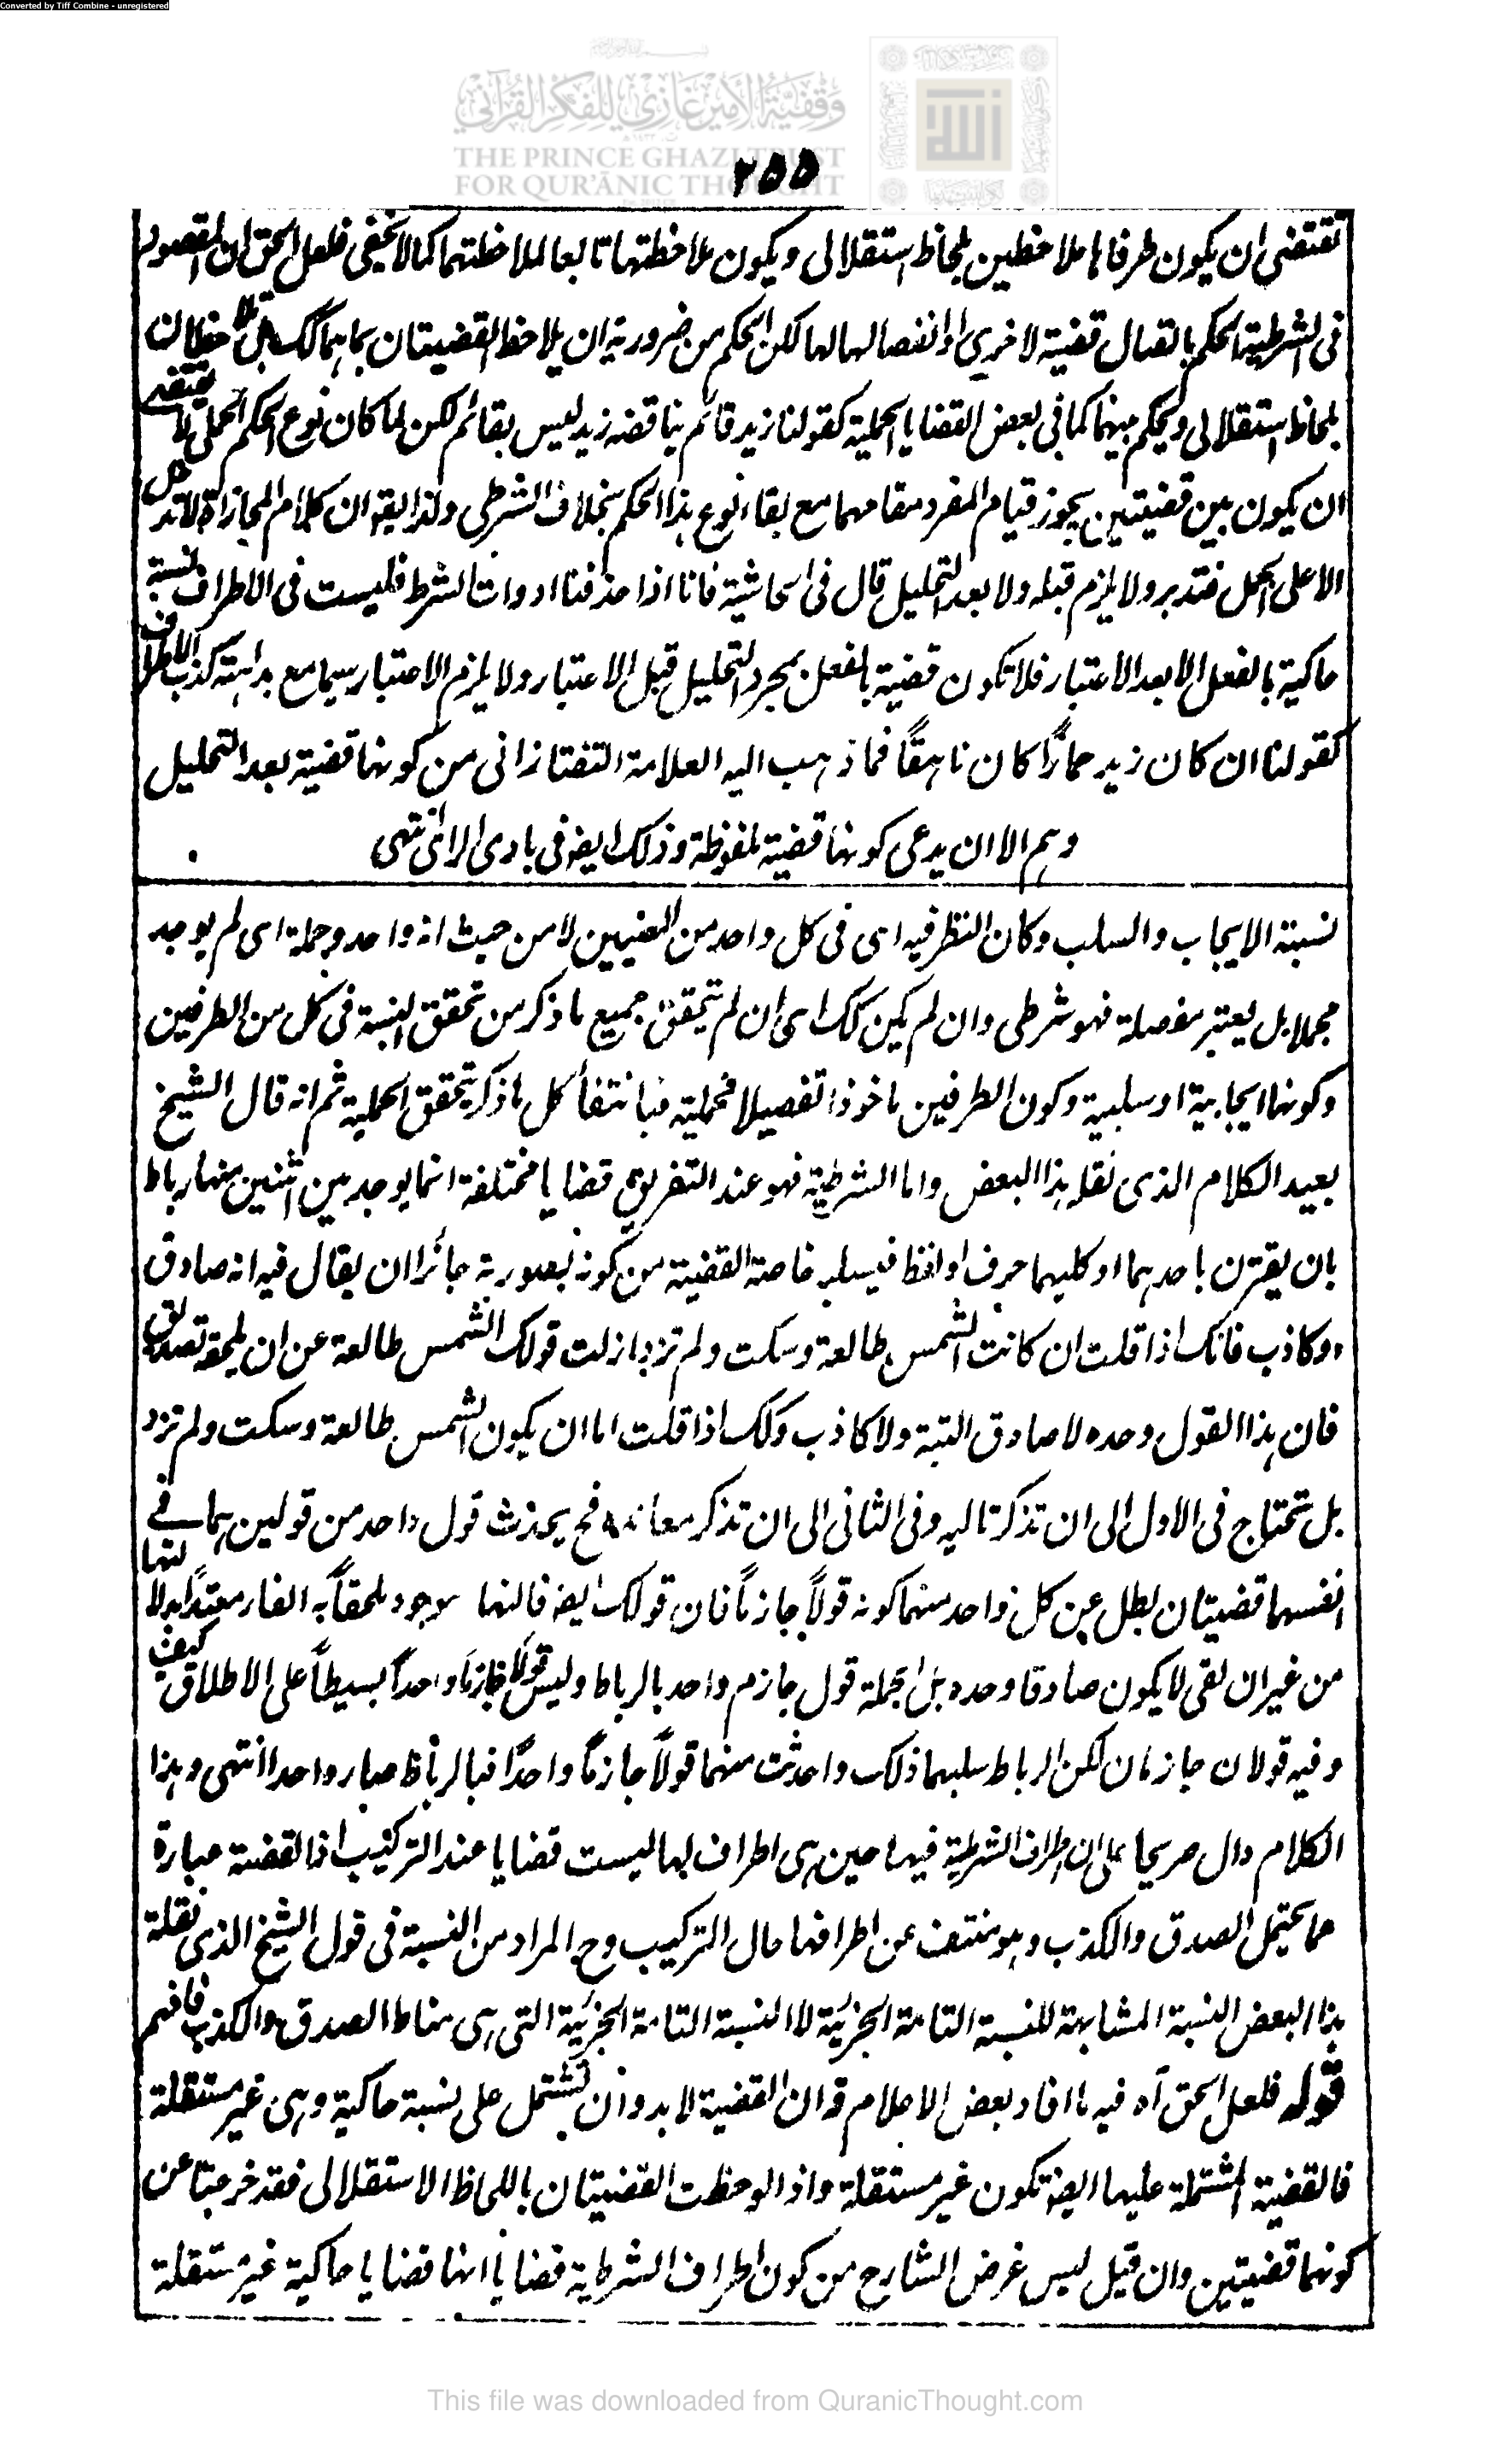 Converted by Tiff Combine - unregistered
وقفية الأمير غازي للفكر القرآني
THE PRINCE GHAZI TRUST
FOR QUR'ĀNIC THOUGHT
٢٥٥
تقتضى ان يكون طرفاها ملاحظين بلحاظ استقلالى ويكون ملاحظتها تابعا لملاحظتهما كما لا يخفى فلعل الحق ان المقصود
فى الشرطية الحكم باتصال قضية لاخرى او انفصالها لها لكن الحكم من ضرورية ان يلاحظ القضيتان بما هما كك بل تلاحظان
بلحاظ استقلالى ويحكم بينهما كما فى بعض القضايا الحملية كقولنا زيد قائم يناقضه زيد ليس بقائم لكن لما كان نوع الحكم الحملى لا يقتضى
ان يكون بين قضيتين يجوز قيام المفرد مقامهما مع بقاء نوع هذا الحكم بخلاف الشرطى ولذا يقه ان كلام المجازاة لا تدل
الا على الحمل فتدبر ولا يلزم قبله ولا بعد التحليل قال فى الحاشية فانا اذا حذفنا ادوات الشرط فليست فى الاطراف نسبة
حاكية بالفعل الا بعد الاعتبار فلا تكون قضية بالفعل بمجرد التحليل قبل الاعتبار ولا يلزم الاعتبار سيما مع بداهته كذب الاطراف
كقولنا ان كان زيد حمارًا كان ناهقًا فما ذهب اليه العلامة التفتازانى من كونها قضية بعد التحليل
وهم الا ان يدعى كونها قضية ملفوظة وذلك ايضه فى بادى الراى انتهى
نسبة الايجاب والسلب وكان النظر فيه اى فى كل واحد من المعنيين لا من حيث انه واحد وجملة اى لم يوجد
مجملا بل يعتبر مفصلة فهو شرطى وان لم يكين كك اى ان لم يتحقق جميع ما ذكر من تحقق النسبة فى كل من الطرفين
وكونها ايجابية او سلبية وكون الطرفين ماخوذا تفصيلا فحملية فبانتفاء كل ما ذكر يتحقق الحملية ثم انه قال الشيخ
بعيد الكلام الذى نقله هذا البعض واما الشرطية فهو عند التفريق قضايا مختلفة انما يوجد بين اثنين منها رباط
بان يقترن باحدهما او كليهما حرف او لفظ فيسلب خاصة القضية من كونه بصورية جائزا ان يقال فيه انه صادق
او كاذب فانك اذا قلت ان كانت الشمس طالعة وسكت ولم تزد ازلت قولك الشمس طالعة عن ان يلحقه تصديق
فان هذا القول وحده لا صادق البتة ولا كاذب وكك اذا قلت اما ان يكون الشمس طالعة وسكت ولم تزد
بل تحتاج فى الاول الى ان تذكر تاليه وفى الثانى الى ان تذكر معانده فح يحدث قول واحد من قولين هما فى
انفسهما قضيتان بطل عن كل واحد منهما كونه قولاً جازماً فان قولك ايضه فالنها موجود ملحقاً به الفاء مبتدأ به لا
من غير ان لقى لا يكون صادقا وحده بل الجملة قول جازم واحد بالرباط وليس قولا جازما واحداً بسيطاً على الاطلاق كيف
وفيه قولان جازمان لكن الرباط سلبهما ذلك واحدثت منهما قولاً جازمًا واحدًا فبالرباط صار واحدا انتهى وهذا
الكلام دال صريحا على ان اطراف الشرطية فيها حين هى اطراف لها ليست قضايا عند التركيب اذ القضية عبارة
عما يحتمل الصدق والكذب وهو منتف عن اطرافها حال التركيب وح المراد من النسبة فى قول الشيخ الذى نقلة
هذا البعض النسبة المشابهة للنسبة التامة الخبرية لا النسبة التامة الخبرية التى هى مناط الصدق والكذب فافهم
قوله فلعل الحق آه فيه ما افاد بعض الاعلام قه ان القضية لا بد وان تشتمل على نسبة حاكية وهى غير مستقلة
فالقضية المشتملة عليها ايضه تكون غير مستقلة واذا لوحظت القضيتان باللحاظ الاستقلالى فقد خرجتا عن
كونهما قضيتين وان قيل ليس غرض الشارح من كون اطراف الشرطية قضايا انها قضايا حاكية غير مستقلة
This file was downloaded from QuranicThought.com